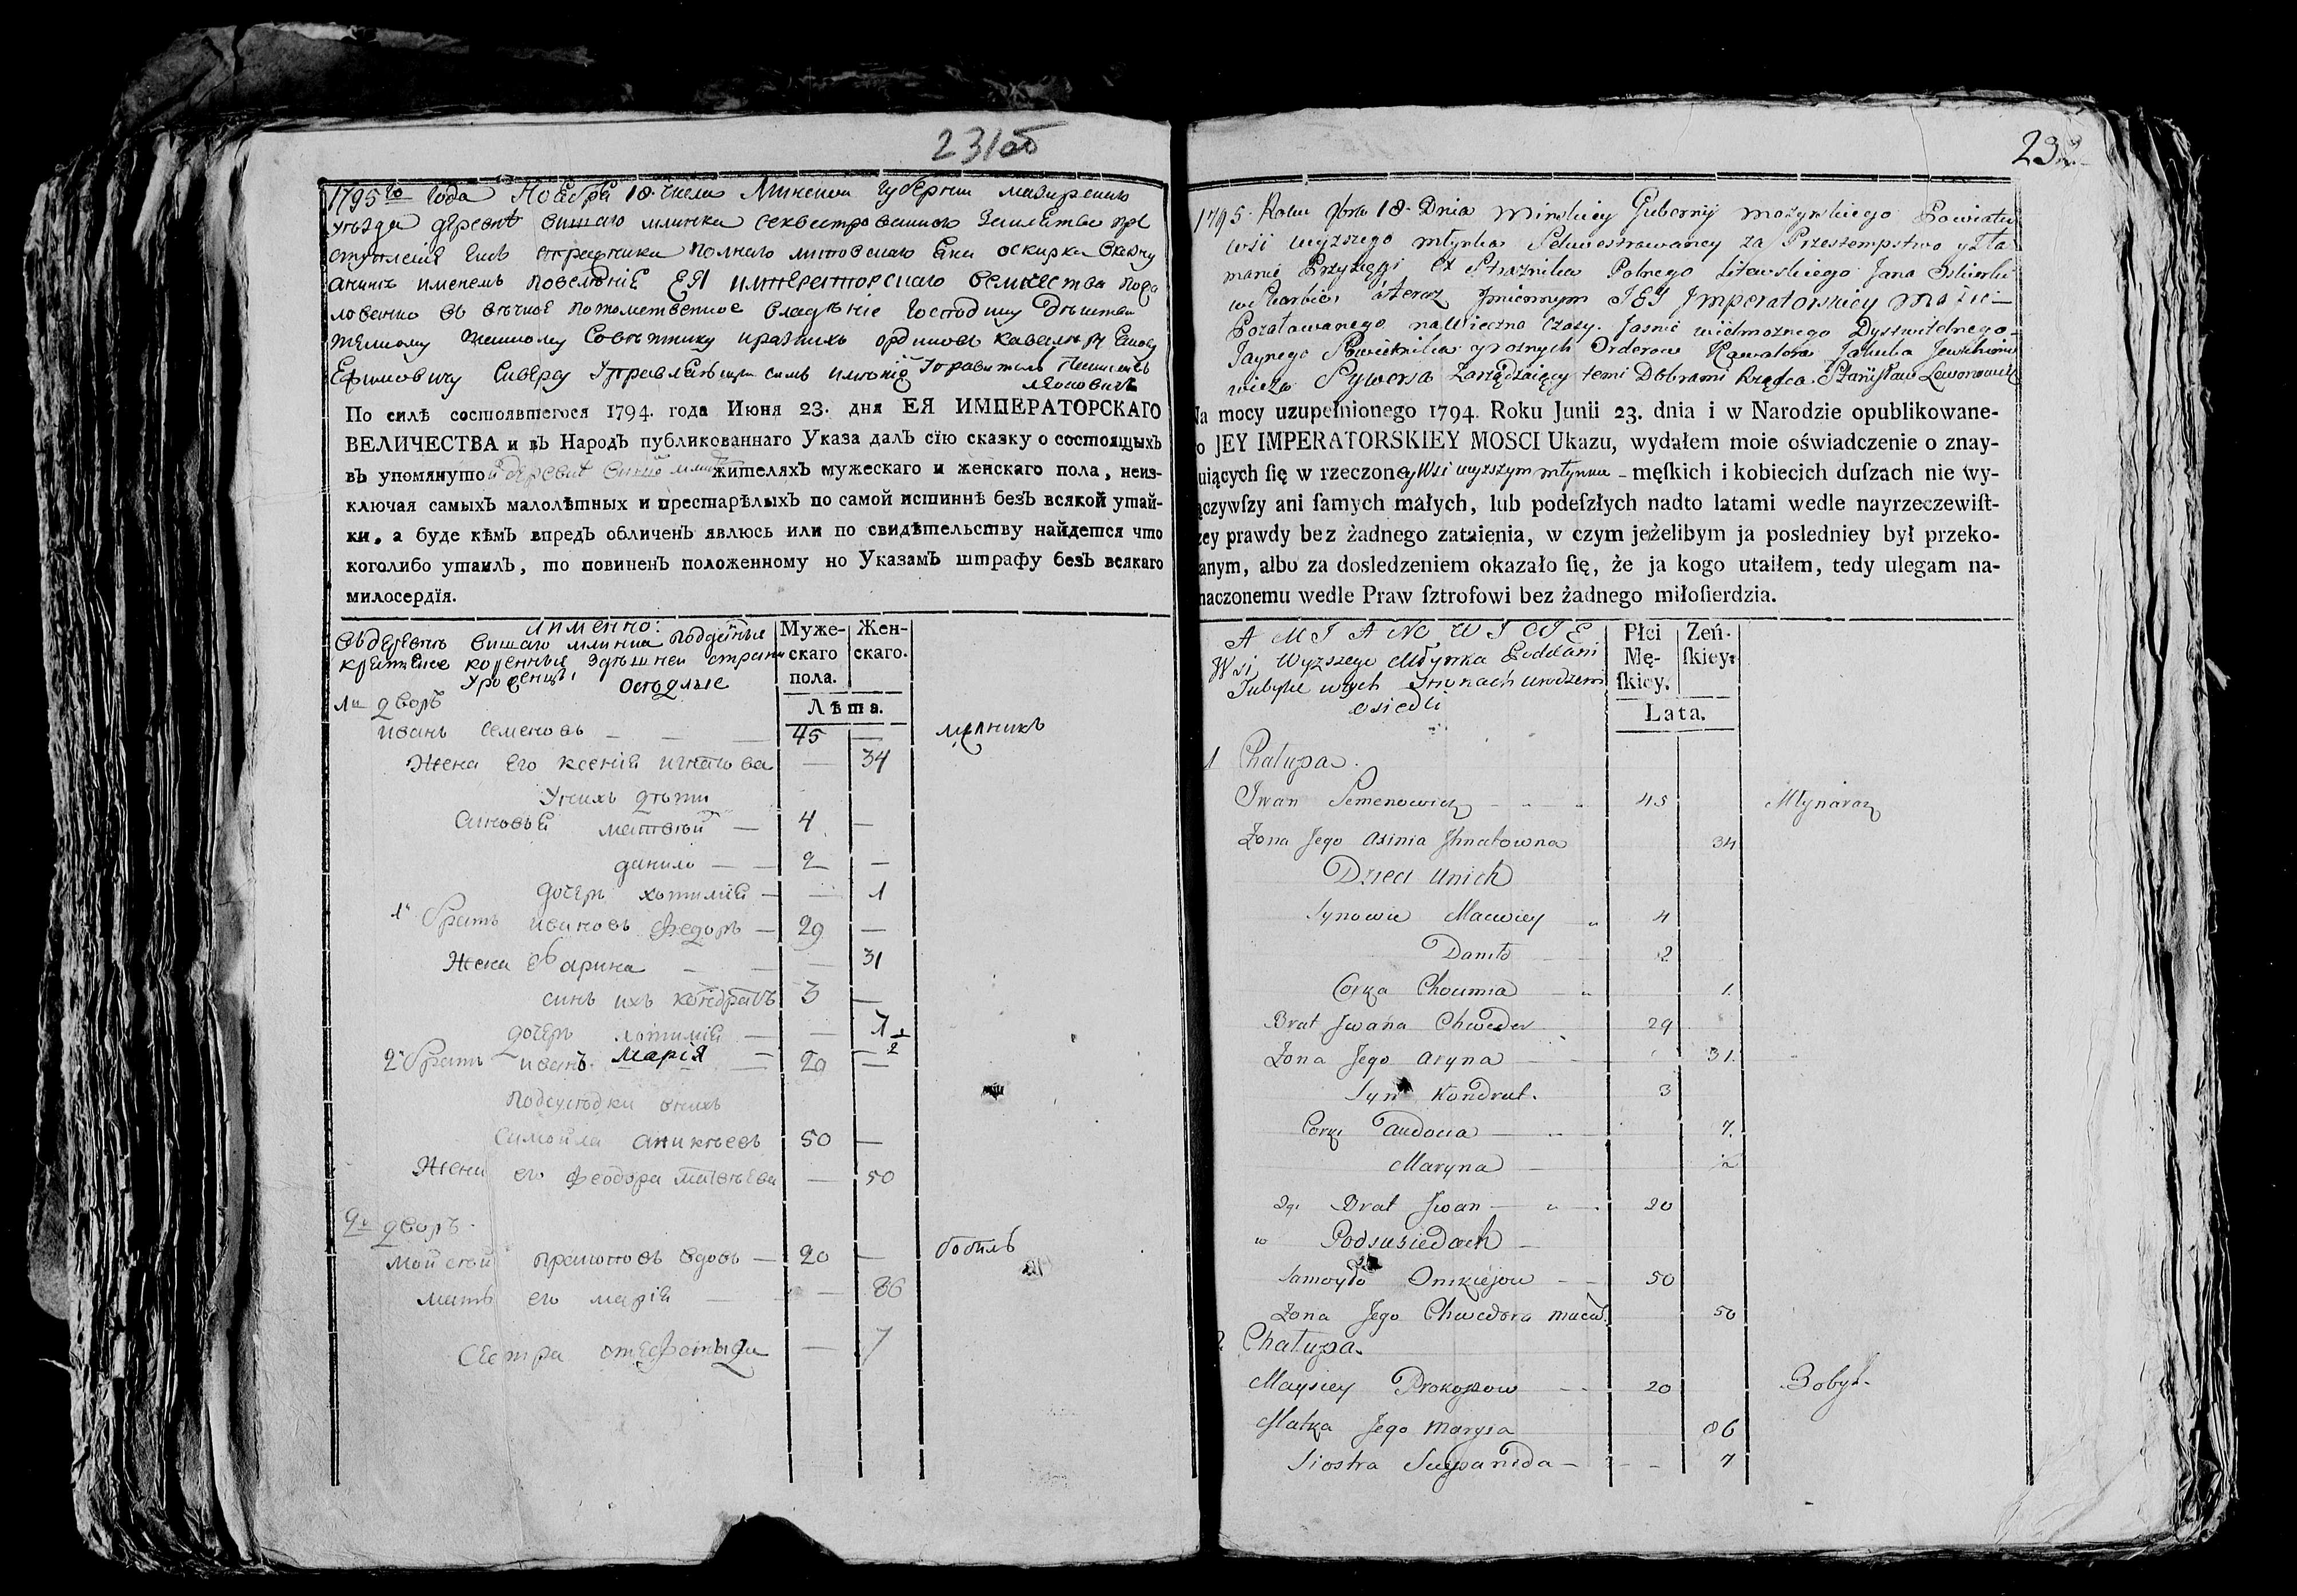 231об
1795го года Ноября 18 числа Минской губернии мазирскаго
уезда деревне вишаго млинка секвестрованной
литовскаго Яна оскирки
имянемъ повеленіе ЕЯ императорскаго величества
въ вечное потомственное владеніе Господину
тайному Советнику ордиповъ кавалеру
Ефимовичу Сиверсу Управитель
По силѣ состоявшегося 1794. года Июня 23. дня ЕЯ ИМПЕРАТОРСКАГО
ВЕЛИЧЕСТВА и въ Народъ публикованнаго Указа далъ сїю сказку о состоящыхъ
въ упомянутой деревне жителяхъ мужескаго и женскаго пола, неиз-
ключая самыхъ малолѣтных и престарѣлыхъ по самой истиннѣ безъ всякой утай-
ки, а буде кѣмъ впредъ обличенъ явлюсь или по свидѣтельству найдется что
коголибо утаилъ, то повиненъ положенному по Указамъ штрафу безъ всякаго
милосердїя.
имменно:
вишаго млинка
коренные здешней
Уроженцы оседлые
Муже-
скаго
пола.
Жен-
скаго.
Лѣта.
1й дворъ
иванъ семеновъ 45 мелникъ
Жена его ксенія игнатова 34
Унихъ дети
Синовья матвей 4
данило 2
дочерь хотимія 1
1й братъ ивановъ федоръ 29
Жена его арина 31
синъ ихъ кондратъ 3
дочерь 7
марія 2
2й братъ иванъ 20
Подсуседки унихъ
Самойла аникеевъ 50
Жена его феодора матвеева 50
2й дворъ
мойсей прокоповъ вдовъ 20 бобиль
мать его марія 86
Сестра 7
232
1795 Roku 18 Dnia Minskiey Gubernij Mozyrskiego Powiatu
wsi wyzszego młynka Sekwestrowaney za Przestempstwo y zła
manie Przysięgi Ex Straznika Polnego Litewskiego Jana Oskierki
w skarbie, a teraz Imiennym JEJ Imperatorskiey Mości
na Wieczne Czasy. Jasnie wielmoznego Dystwitelnego
Taynego Sowietnika y roznych Orderow Kawalera Jakuba Jewchimo
wicza Sywersa Zarządzaiący temi Dobrami Rządca Stanisław Lewonowicz
Na mocy uzupełnionego 1794. Roku Junii 23. dnia i w Narodzie opublikowane-
o JEY IMPERATORSKIEY MOSCI Ukazu, wydałem moie oświadczenie o znay-
uiących ſię w rzeczoney Wsi wyzszym młynku męſkich i kobiecich duſzach nie wy-
ączywſzy ani ſamych małych, lub podeſzłych nadto latami wedle nayrzeczewiſt-
zey prawdy bez żadnego zataienia, w czym jeżelibym ja posledniey był przeko-
anym, albo za dosledzeniem okazało ſię, że ja kogo utaiłem, tedy ulegam na-
naczonemu wedle Praw ſztrofowi bez żadnego miłoſierdzia.
A MIANOWICIE
Wsi Wyzszego Młynka Poddani
Tubylce w tych Stronach urodzeni
osiedli
Płci
Mę-
ſkiey.
Zeń-
ſkiey.
Lata.
1 Chałupa
Iwan Semenowicz 45 Młynarz
Zona Jego Axinia Ihnatowna 34
Dzieci unich
Synowie Maciey 4
Daniło 2
Corka Choumia 1
Brat Iwana Chwedor 29
Zona Jego Aryna 31
Syn Kondrat. 3
Corki Taudocia 7
Maryna 2
2gi Brat Iwan 20
w Podsusiedach
Samoyło Onikiejow 50
Zona Jego Chwedora maciej. 50
2 Chałupa
Maysiey Prokopow 20 Bobyl
Matka Jego Marysa 86
Siostra 7